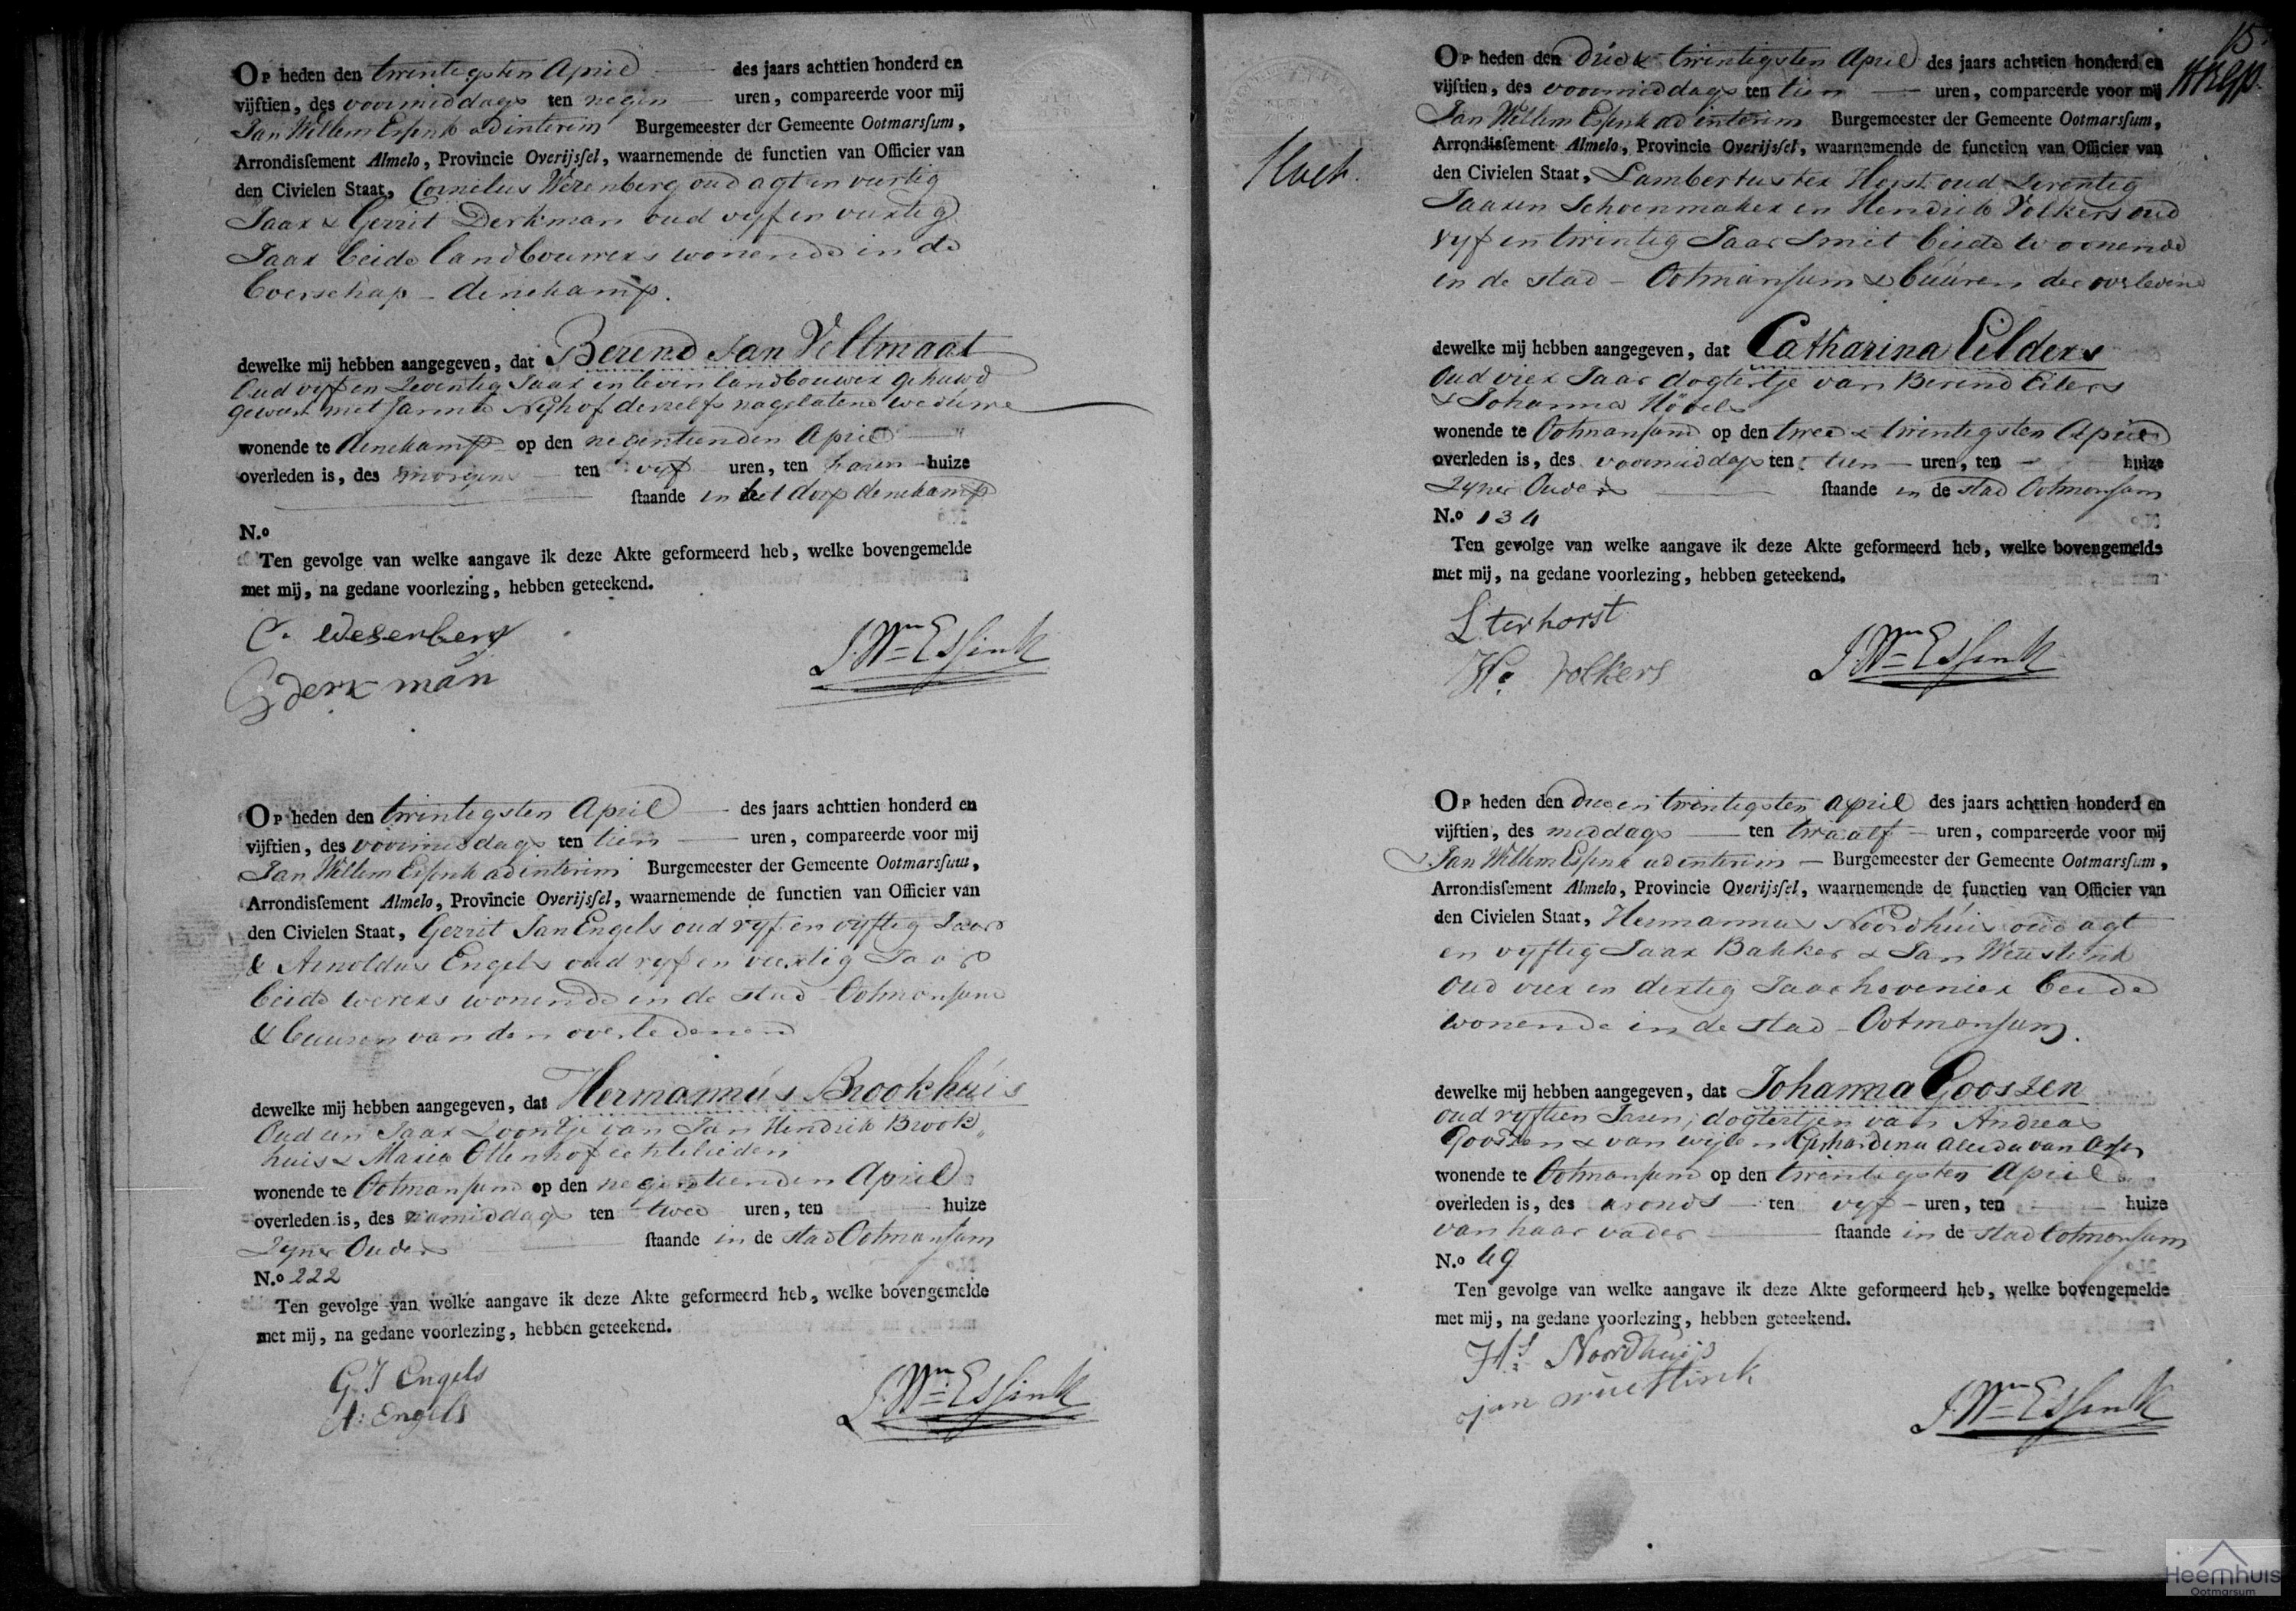 Op heden den twintigsten April des jaars achttien honderd en
vijftien, des voormiddags ten negen uren, compareerde voor mij
Jan Willem Essink ad interim Burgemeester der Gemeente Ootmarssum,
Arrondissement Almelo, Provincie Overijssel, waarnemende de functien van Officier van
den Civielen Staat, Cornelus Wezenberg oud agt en veertig
Jaar & Gerrit Derkman oud vyf en veertig
Jaar beide landbouwers wonende in de
boerschap - denekamp.
dewelke mij hebben aangegeven, dat Berend Jan Veltmaat
Oud vyf en Zeventig Jaar in leven landbouwer gehuwd
geweest met Janna Nyhof deszelfs nagelatene weduwe
wonende te denekamp op den negentienden April
overleden is, des morgens ten vyf uren, ten haren huize
staande in het dorp denekamp
N.o
Ten gevolge van welke aangave ik deze Akte geformeerd heb, welke bovengemelde
met mij, na gedane voorlezing, hebben geteekend.
C. Weserberg
G derkman
J. Wm Essink
Op heden den twintigsten April des jaars achttien honderd en
vijftien, des voormiddags ten tien uren, compareerde voor mij
Jan Willem Essink ad interim Burgemeester der Gemeente Ootmarssum,
Arrondissement Almelo, Provincie Overijssel, waarnemende de functien van Officier van
den Civielen Staat, Gerrit Jan Engels oud vyf en vyftig Jaar
& Arnoldus Engels oud vyf en veertig Jaar
beide wevers wonende in de stad Ootmarssum
& buuren van den overledenen
dewelke mij hebben aangegeven, dat Hermannus Brookhuis
Oud een Jaar Zoontje van Jan Hendrik Brook„
huis & Maria Ottenhof echtelieden
wonende te Ootmarssum op den negentienden April
overleden is, des namiddags ten twee uren, ten huize
Zyner Ouders staande in de stad Ootmarssum
N.o 222
Ten gevolge van welke aangave ik deze Akte geformeerd heb, welke bovengemelde
met mij, na gedane voorlezing, hebben geteekend.
G. J Engels
A: Engels
J. Wm Essink
15
Op heden den drie & twintigsten April des jaars achttien honderd en
vijftien, des voormiddags ten tien uren, compareerde voor mij
Jan Willem Essink ad interim Burgemeester der Gemeente Ootmarssum,
Arrondissement Almelo, Provincie Overijssel, waarnemende de functien van Officier van
den Civielen Staat, Lambertus ter Horst oud Zeventig
Jaaren Schoenmaker en Hendrik Volkers oud
vyf en twintig Jaar Smit beide woonende
in de stad - Ootmarssum & buuren der overledene
dewelke mij hebben aangegeven, dat Catharina Eilders
Oud vier Jaar dogtertje van Berend Eilers
& Johanna Hövels
wonende te Ootmarssum op den twee & twintigsten April
overleden is, des voormiddags ten tien uren, ten huize
Zyner Ouders staande in de stad Ootmarssum
N.o 134
Ten gevolge van welke aangave ik deze Akte geformeerd heb, welke bovengemelde
met mij, na gedane voorlezing, hebben geteekend.
L terhorst
H. Volkers
J. Wm Essink
Op heden den drie en twintigsten april des jaars achttien honderd en
vijftien, des middags ten twaalf uren, compareerde voor mij
Jan Willem Essink ad interim Burgemeester der Gemeente Ootmarssum,
Arrondissement Almelo, Provincie Overijssel, waarnemende de functien van Officier van
den Civielen Staat, Hermannus Noordhuis oud agt
en vyftig Jaar Bakker & Jan Weustink
Oud vier en dertig Jaar hovenier beide
wonende in de stad - Ootmarssum.
dewelke mij hebben aangegeven, dat Johanna Goossen
oud vyftien Jaren, dogtertjen van Andreas
Goossen & van wylen Gerhardina Aleida van
wonende te Ootmarssum op den twintigsten April
overleden is, des avonds ten vyf uren, ten huize
van haar vader staande in de stad Ootmarssum
N.o 49
Ten gevolge van welke aangave ik deze Akte geformeerd heb, welke bovengemelde
met mij, na gedane voorlezing, hebben geteekend.
Hs Noordhuijs
jan wuestinck
J. Wm Essink
Heemhuis
Ootmarsum